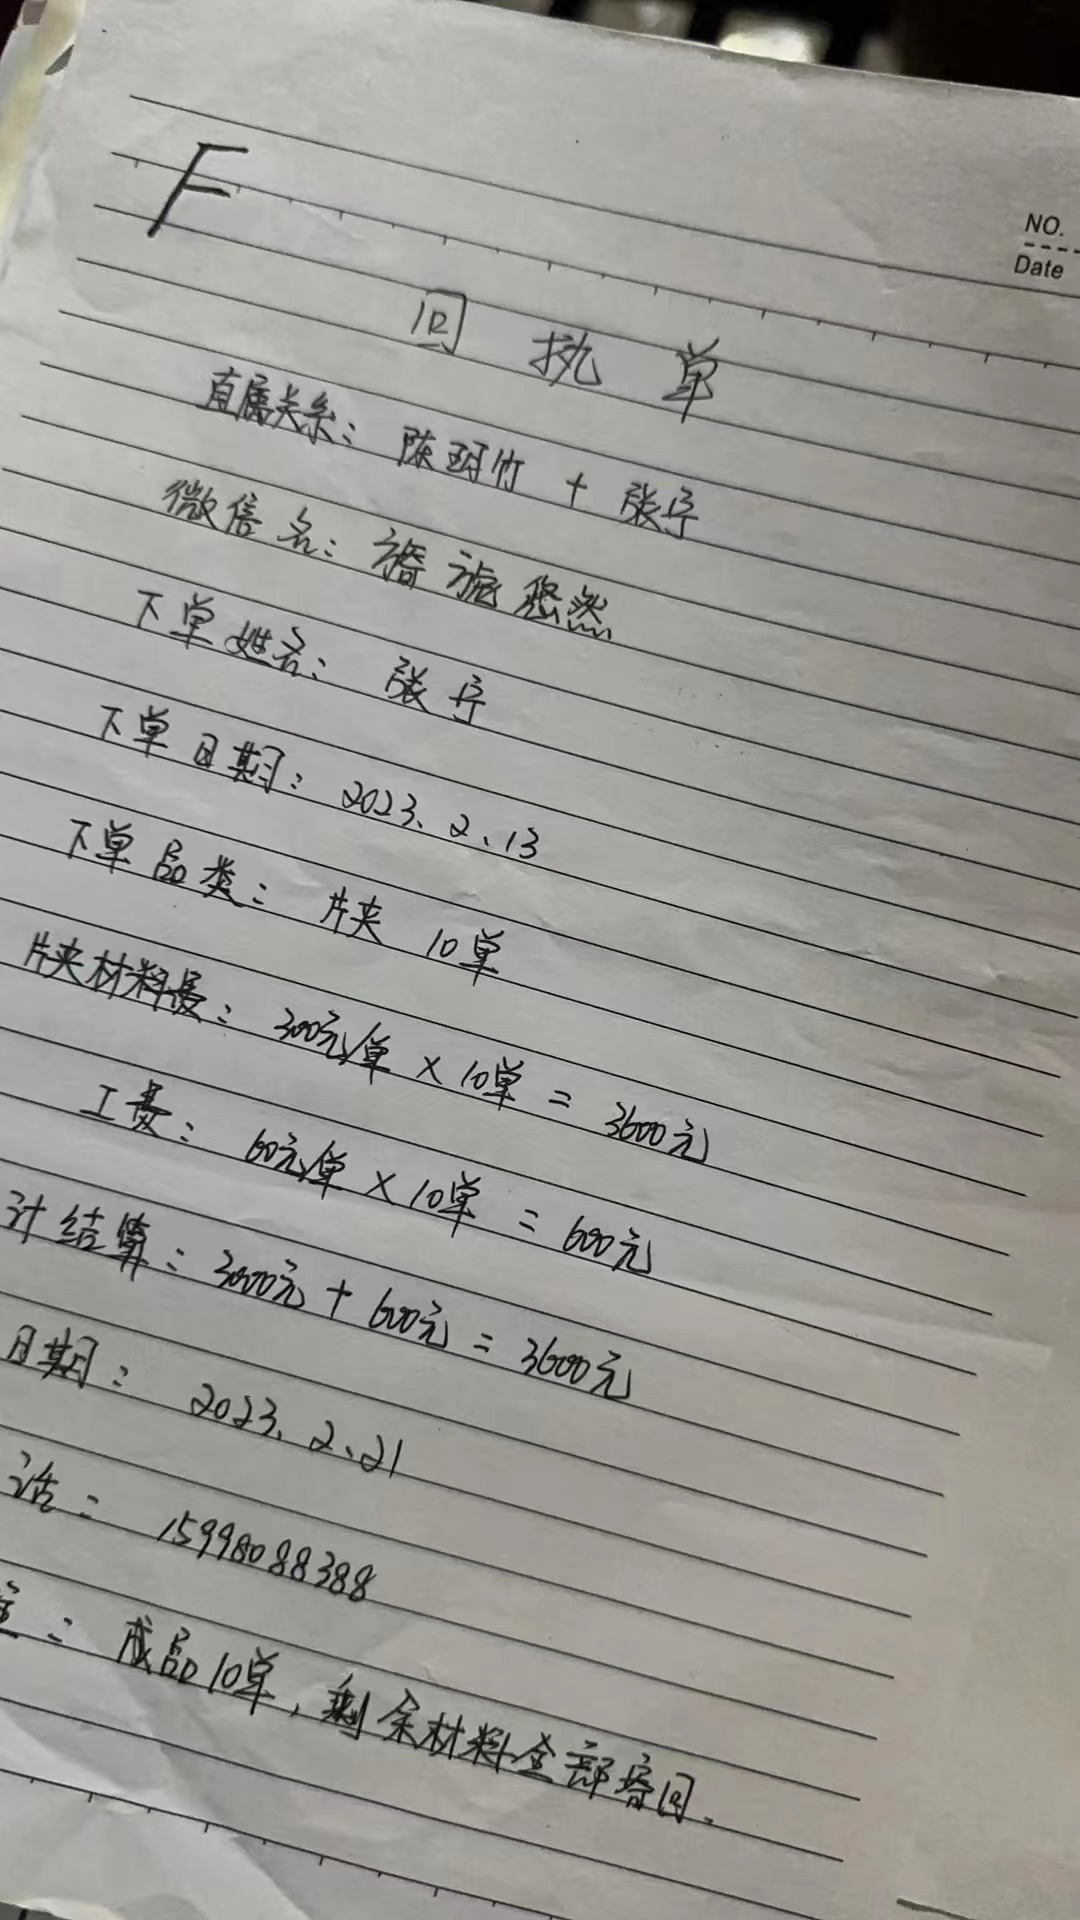 F
NO.
Date
回执单
直属关系：陈珂竹 + 张宇
微信名：悠然
下单姓名：张宇
下单日期：2023、2、13
下单品类：片夹 10单
片夹材料费：300元/单 × 10单 = 3600元
工费：60元/单 × 10单 = 600元
计结算：3000元 + 600元 = 3600元
日期：2023、2、21
话：15998088388
注：成品10单，剩余材料全部寄回。